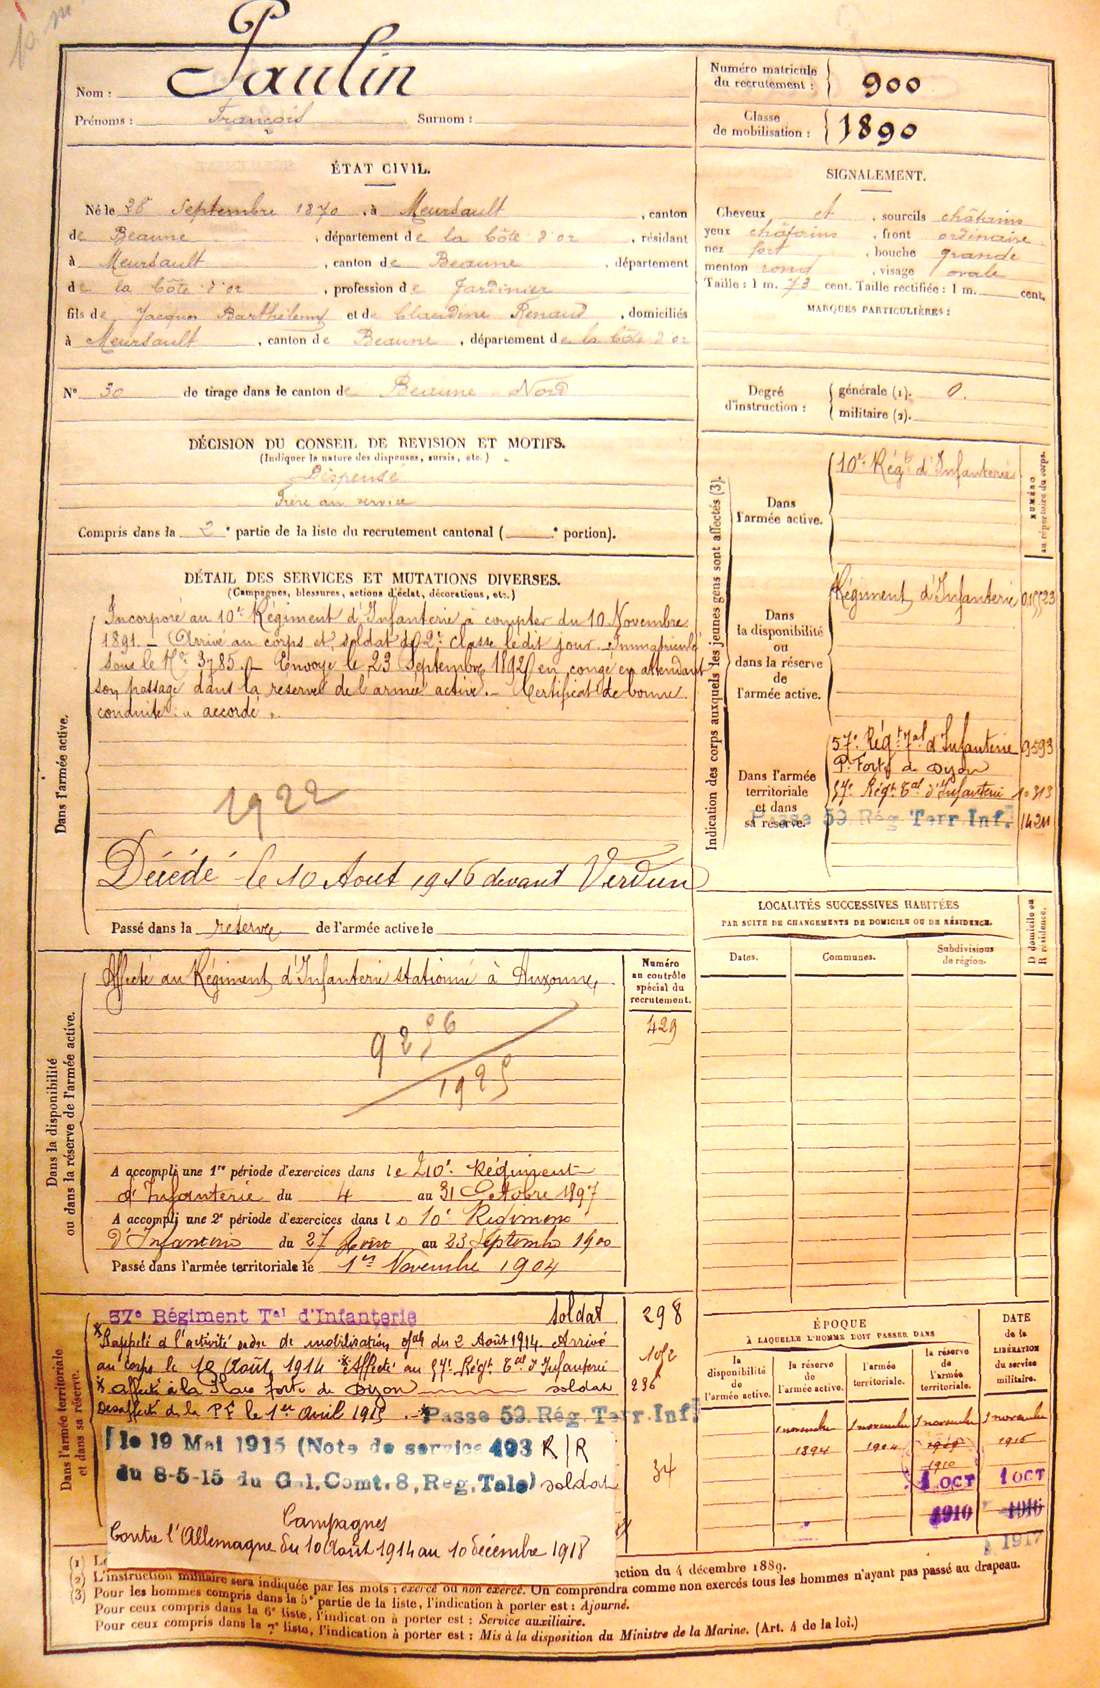 Nom : Paulin
Prénoms : François Surnom :
Numéro matricule
du recrutement : 900
Classe
de mobilisation : 1890
ÉTAT CIVIL.
Né le 28 Septembre 1870, à Meursault, canton
de Beaune, département de la Côte d'or, résidant
à Meursault, canton de Beaune, département
de la Côte d'or, profession de Jardinier
fils de Jacques Barthélemy et de Claudine Renaud, domiciliés
à Meursault, canton de Beaune, département de la Côte d'or
N° 30 de tirage dans le canton de Beaune Nord
SIGNALEMENT.
Cheveux et, sourcils châtains
yeux châtains, front ordinaire
nez fort, bouche grande
menton rond, visage ovale
Taille : 1 m. 73 cent. Taille rectifiée : 1 m. cent.
MARQUES PARTICULIÈRES :
Degré
d'instruction :
générale (1).
militaire (2).
DÉCISION DU CONSEIL DE REVISION ET MOTIFS.
(Indiquer la nature des dispenses, sursis, etc.)
Dispensé
Frère au service
Compris dans la 2e partie de la liste du recrutement cantonal ( e portion).
DÉTAIL DES SERVICES ET MUTATIONS DIVERSES.
(Campagnes, blessures, actions d'éclat, décorations, etc.)
Dans l'armée active.
Incorporé au 10e Régiment d'Infanterie à compter du 10 Novembre
1891. - Arrivé au corps et soldat de 2e classe ledit jour. Immatriculé
sous le No 3785. - Envoyé le 23 Septembre 1892 en congé en attendant
son passage dans la réserve de l'armée active. - Certificat de bonne
conduite : " accordé ".
1922
Décédé le 10 Aout 1916 devant Verdun
Passé dans la réserve de l'armée active le
Indication des corps auxquels les jeunes gens sont affectés (3).
NUMÉRO
au répertoire du corps.
Dans
l'armée active.
10e Régt d'Infanterie
Dans
la disponibilité
ou
dans la réserve
de
l'armée active.
Régiment d'Infanterie
Dans l'armée
territoriale
et dans
sa réserve.
57e Régt Tal d'Infanterie 9593
Pce Forte de Dijon
57e Régt Tal d'Infanterie 10313
Passé 59 Rég Terr. Inf. 14211
LOCALITÉS SUCCESSIVES HABITÉES
PAR SUITE DE CHANGEMENTS DE DOMICILE OU DE RÉSIDENCE.
D domicile ou
R résidence.
Dates.
Communes.
Subdivisions
de région.
Dans la disponibilité
ou dans la réserve de l'armée active.
Affecté au Régiment d'Infanterie stationné à Auxonne,
Numéro
au contrôle
spécial du
recrutement.
429
9256
1925
A accompli une 1re période d'exercices dans le 210e Régiment
d'Infanterie du 4 au 31 Octobre 1897
A accompli une 2e période d'exercices dans le 10e Régiment
d'Infanterie du 27 Août au 23 Septembre 1900
Passé dans l'armée territoriale le 1er Novembre 1904
Dans l'armée territoriale
et dans sa réserve.
57e Régiment Tal d'Infanterie soldat 298
Rappelé à l'activité ordre de mobilisation gale du 2 Août 1914. Arrivé
au corps le 10 Août 1914 Affecté au 57e Régt Tal d'Infanterie
Affecté à la Place forte de Dijon soldat 236
Désaffecté de la PF le 1er avril 1915. Passé 59 Rég. Terr. Inf.
le 19 Mai 1915 (Note de service 493 R/R
du 8-5-15 du Gal. Comt. 8, Reg. Tale) soldat 34
Campagnes
Contre l'Allemagne du 10 Août 1914 au 10 décembre 1918
ÉPOQUE
À LAQUELLE L'HOMME DOIT PASSER DANS
DATE
de la
LIBÉRATION
du service
militaire.
la
disponibilité
de
l'armée active.
la réserve
de
l'armée active.
l'armée
territoriale.
la réserve
de
l'armée
territoriale.
1 novembre 1 novembre 1 novembre 1 novembre
1894 1904 1916
1910
1 OCT 1 OCT
1910 1916
1917
(1) Le
nction du 4 décembre 1889.
(2) L'instruction militaire sera indiquée par les mots : exercé ou non exercé. On comprendra comme non exercés tous les hommes n'ayant pas passé au drapeau.
(3) Pour les hommes compris dans la 5e partie de la liste, l'indication à porter est : Ajourné.
Pour ceux compris dans la 6e liste, l'indication à porter est : Service auxiliaire.
Pour ceux compris dans la 7e liste, l'indication à porter est : Mis à la disposition du Ministre de la Marine. (Art. 4 de la loi.)